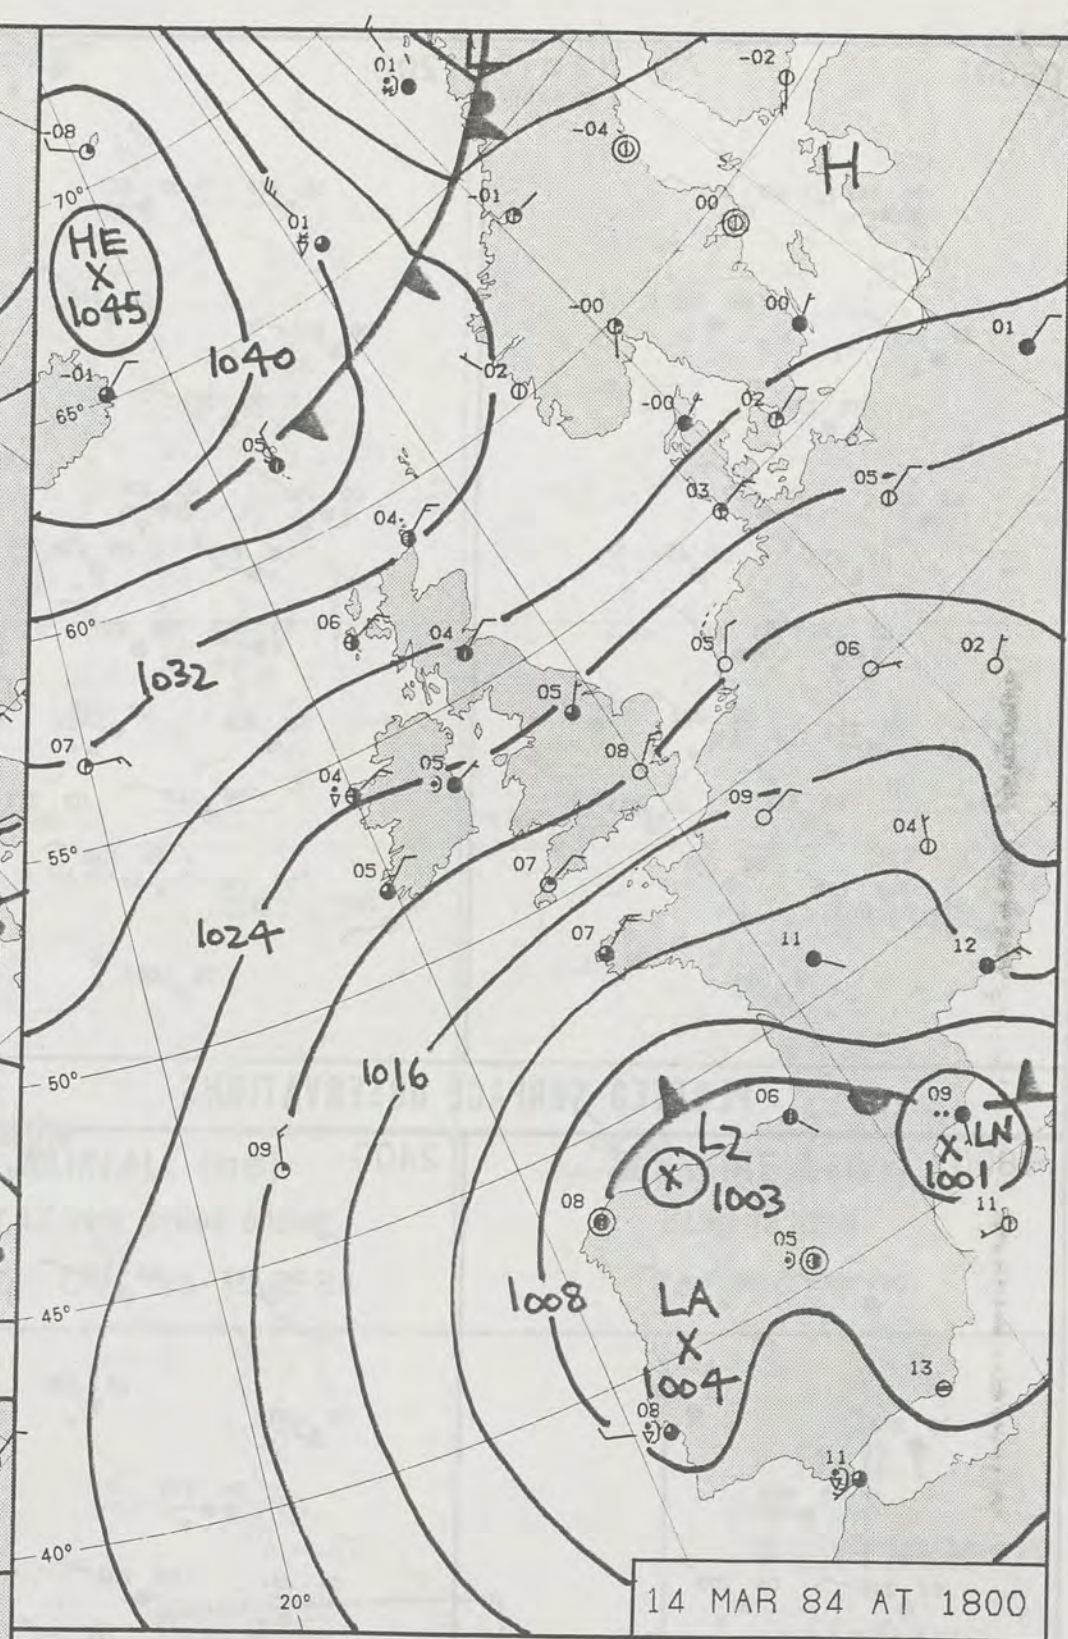 -02
01
-04
-08
H
70°
-01
00
01
HE
X
1045
-00
00
01
1040
02
-01
02
65°
-00
05
05
03
04
60°
06
04
05
06
02
1032
05
07
08
04
05
09
04
55°
07
05
1024
07
11
12
50°
1016
06
09
LZ
LN
X
1001
X
1003
09
08
11
05
1008
LA
X
1004
45°
13
08
11
40°
20°
14 MAR 84 AT 1800